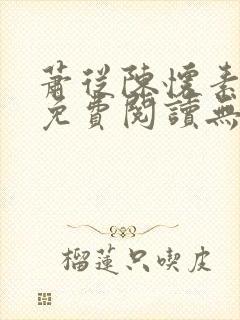 蕭從陳懷素
免費閱讀無
榴蓮只喫皮